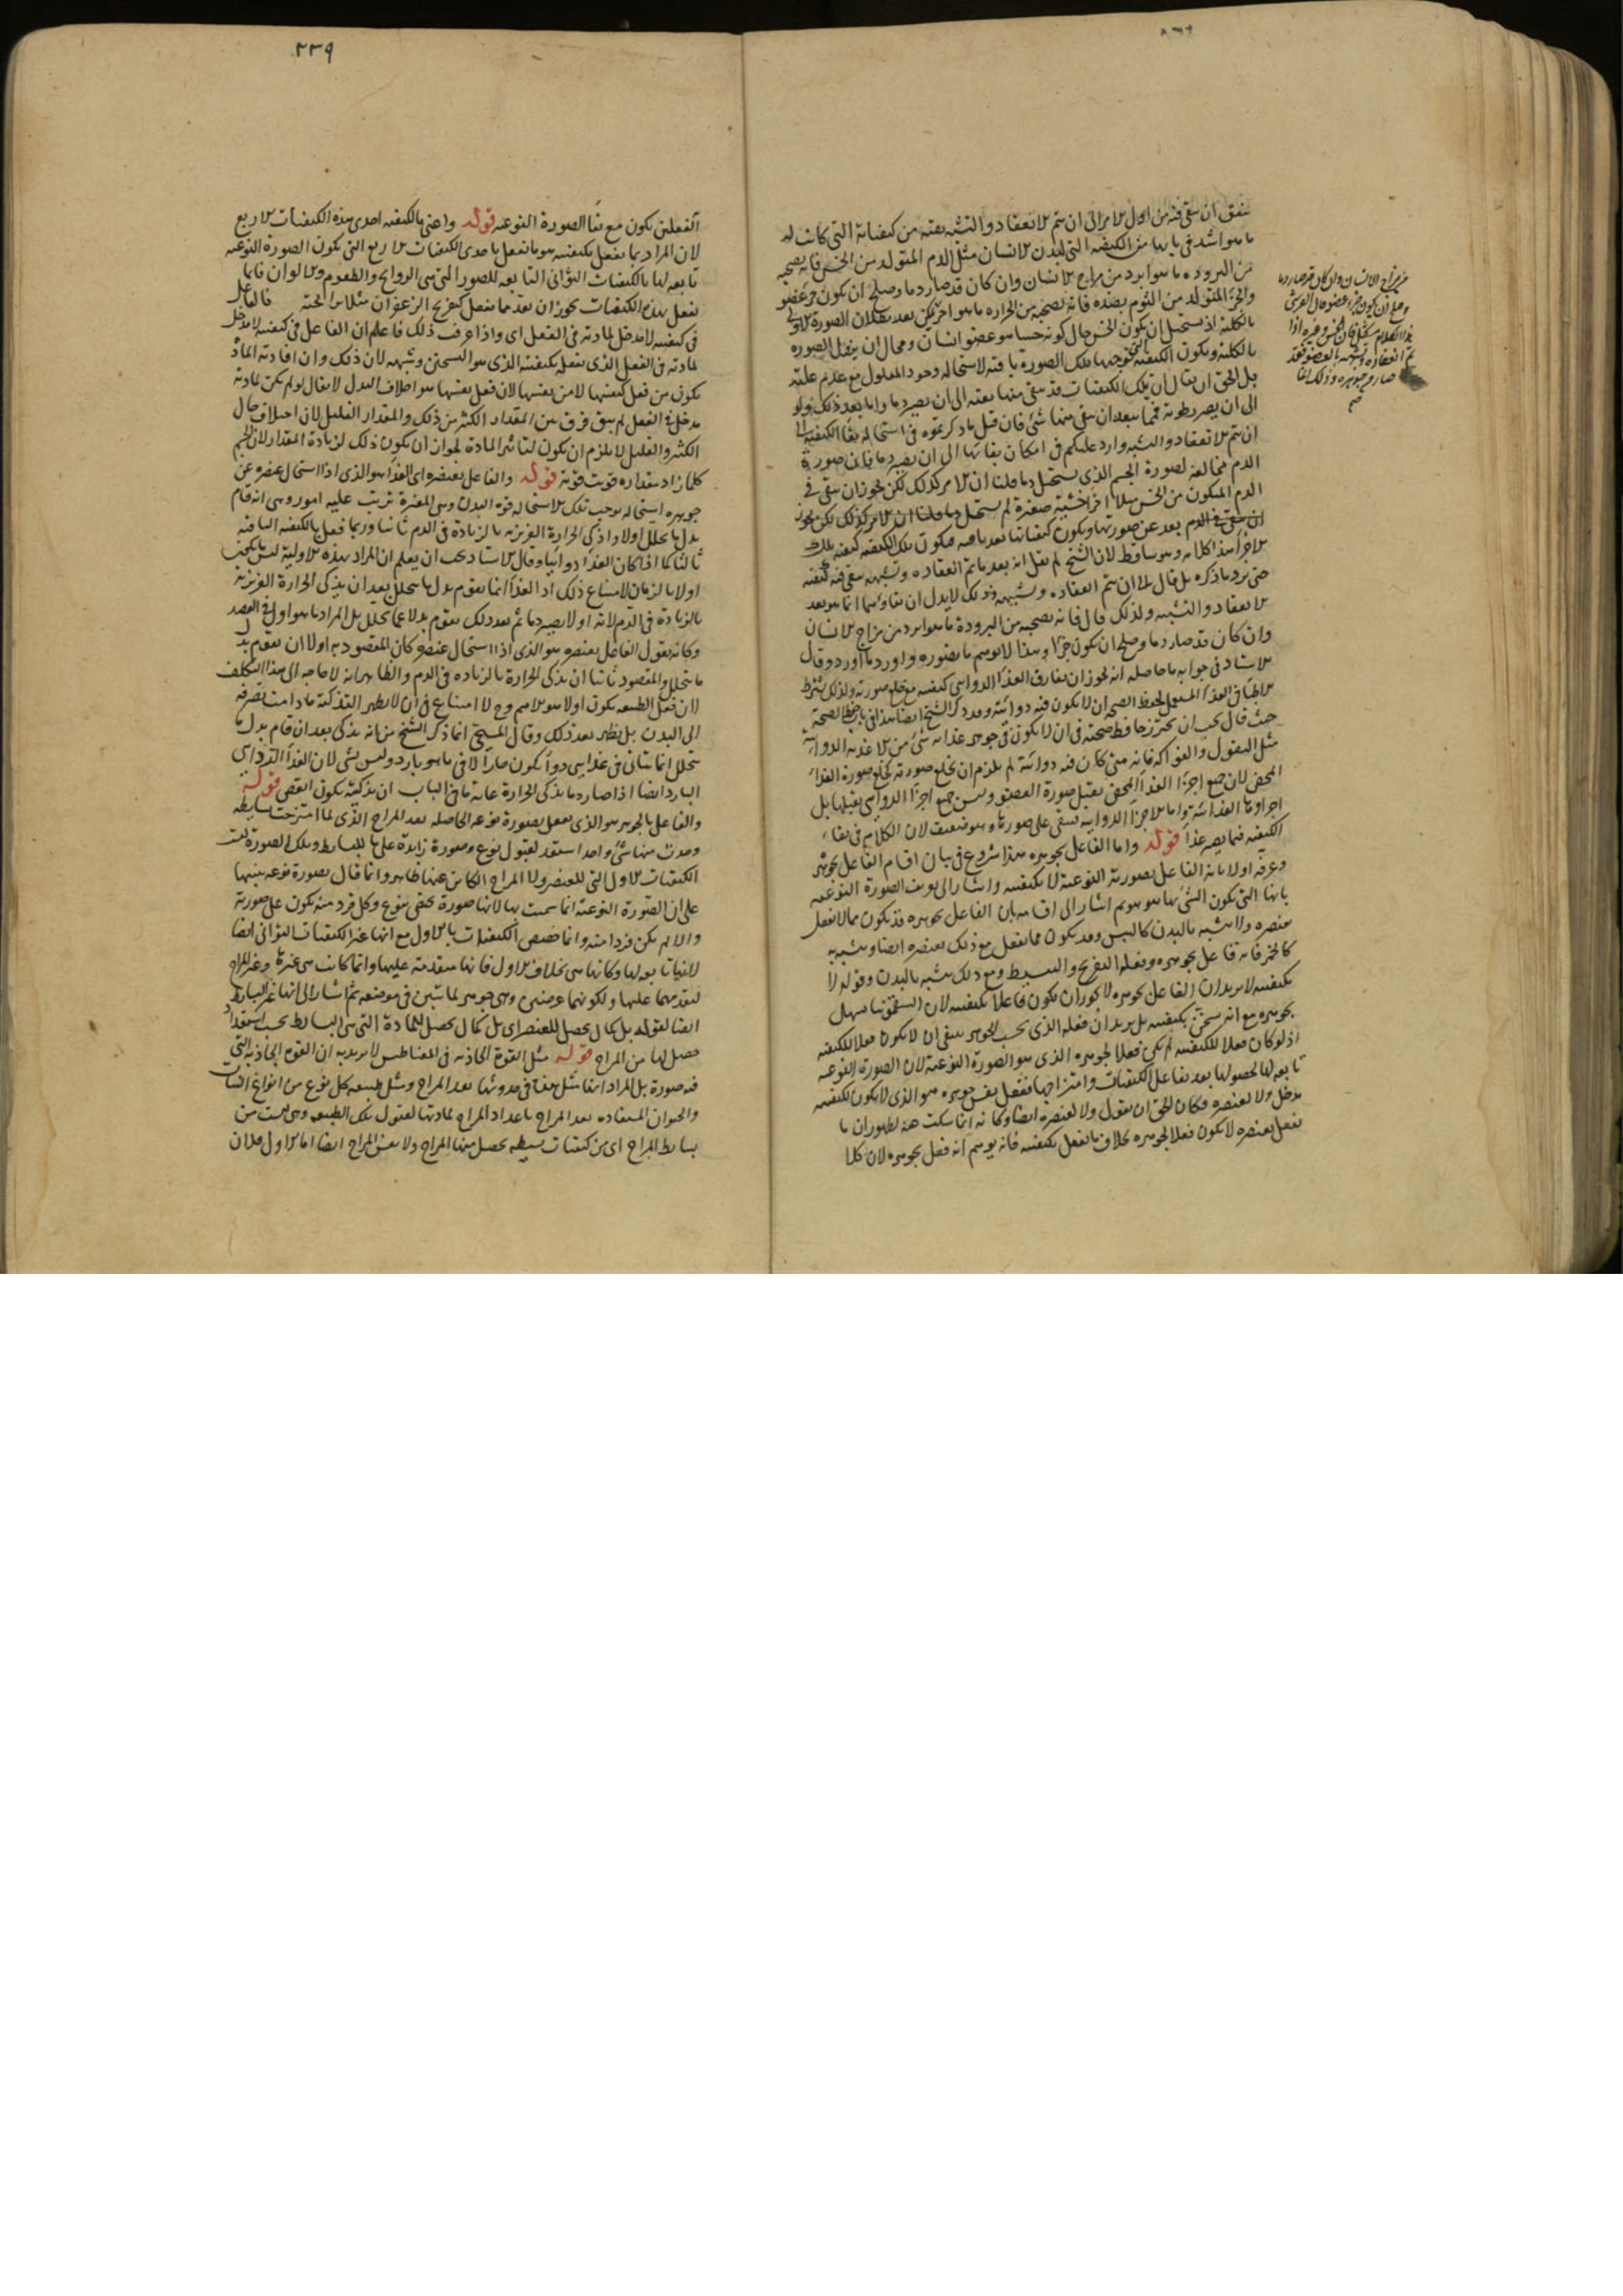 ٢٣٩
يتفق ان يبقى فيه من اول الامر الى ان يتم الانعقاد والتشبه بقية من كيفياته التى كانت له
ما هو اشد فى بابها من الكيفية التى لبدن الانسان مثل الدم المتولد من الخس فانه يصحبه
من البرودة ما هو ابرد من مزاج الانسان وان كان قد صار دما وصلح ان يكون جزء عضو
والجزء المتولد من الثوم بضده فانه يصحبه من الحرارة ما هو احر
بالكلية اذ يستحيل ان يكون الخس حال كونه خسا هو عضو انسان ومحال ان يبطل الصورة
بالكلية ويكون الكيفية تلك الصورة باقية لاستحالة وجود المعلول مع عدم علته
بل الحق ان يقال ان تلك الكيفيات قد يبقى منها بقية الى ان يصير دما واما بعد ذلك
الى ان يصير رطوبة فمما يبعد ان يبقى منها شئ فان قيل ما ذكرتموه فى استحالة بقاء الكيفية الى
ان يتم الانعقاد والتشبه وارد عليكم فى امكان بقائها الى ان يصير دما فان صورة
الدم مخالفة لصورة الجسم الذى يستحيل دما قلنا ان الامر كذلك لكن يجوز ان يبقى فى
الدم المتكون من الخس مثلا اجزاء خسية صغيرة لم يستحل دما
بعد عن صورتها ويكون كيفياتها بعد باقية فيكون تلك الكيفية كيفية تلك
الاجزاء هذا كلامه وهو ساقط لان الشيخ لم يقل انه بعد ما تم انعقاده وتشبهه يبقى فيه كيفية
حتى يرد ما ذكره بل قال الا ان يتم انعقاده وتشبهه وذلك لا يدل ان بقاؤها انما هو بعد
الانعقاد والتشبه ولذلك قال فانه يصحبه من البرودة ما هو ابرد من مزاج الانسان
وان كان قد صار دما وصلح ان يكون جزءا وهذا لا يوهم ما يتصوره واورد ما اورد وقال
الاستاد فى جوابه ما حاصله انه يجوز ان يفارق الغذاء الدوائى كيفيته مع خلع صورته ولذلك يشترط
الاطباء فى الغذاء المستعمل لحفظ الصحة ان لا يكون فيه دوائية وقد ذكر الشيخ ايضا هذا فى باب حفظ الصحة
حيث قال يجب ان يحترز حافظ صحته فى ان لا يكون فى جوهر غذائه شئ من الاغذية الدوائية
مثل البقول والفواكه فانه متى كان فيه دوائية لم يلزم ان يخلع صورته كخلع صورة الغذاء
المحض لان جميع اجزاء الغذاء المحض يقبل صورة العضو وليس جميع اجزاء الدوائى يقبلها بل
اجزاؤه الغذائية واما الاجزاء الدوائية فتبقى على صورتها وهو ضعيف لان الكلام فى بقاء
الكيفية فيما يصير غذاء قوله واما الفاعل بجوهره هذا شروع فى بيان اقسام الفاعل بجوهره
وعرفه اولا بانه الفاعل بصورته النوعية لا بكيفيته واشار الى تعريف الصورة النوعية
بانها التى يكون الشئ بها هو هو ثم اشار الى اقسامه بان الفاعل بجوهره قد يكون مما لا يفعل
بعنصره ولا يشبه بالبدن كالبيش وقد يكون مما يفعل مع ذلك بعنصره ايضا ويشبه به
كالخمر فانه فاعل بجوهره وفعله التفريح والتبسيط ومع ذلك يشبه بالبدن وقوله لا
بكيفيته لا يريد ان الفاعل بجوهره لا يجوز ان يكون فاعلا بكيفيته لان السقمونيا مسهل
بجوهره مع انه مسخن بكيفيته بل يريد ان فعله الذى بحسب الجوهر ينبغى ان لا يكون فعلا للكيفية
اذ لو كان فعلا للكيفية لم يكن فعلا لجوهره الذى هو الصورة النوعية لان الصورة النوعية
تابعة لها لحصولها بعد تفاعل الكيفيات وامتزاجها ففعل بنفس جوهره هو الذى لا يكون لكيفيته
مدخل ولا لعنصره فكان الحق ان يقول ولا لعنصره ايضا وكانه انما سكت عنه لظهور ان ما
يفعل بعنصره لا يكون فعلا لجوهره بخلاف ما يفعل بكيفيته فانه يوهم انه فعل بجوهره لان كلا
من مزاج الانسان وان كان قد صار دما
وصلح ان يكون جزء عضو قال القرشى
هذا الكلام مشكل فان الخس وغيره اذا
تم انعقاده وتشبهه بالعضو فقد
صار من جوهره وذلك انما
صح
الفعلين يكون مع بقاء الصورة النوعية قوله واعنى بالكيفية احدى هذه الكيفيات الاربع
لان المراد بما يفعل بكيفيته هو ما يفعل باحدى الكيفيات الاربع التى يكون الصورة النوعية
تابعة لها بالكيفيات الثوانى التابعة للصور التى هى الروائح والطعوم والالوان فانما
يفعل بهذه الكيفيات يجوز ان يعد مما يفعل كتفريح الزعفران مثلا برائحته فالفاعل
فى كيفيته لا مدخل لمادته فى الفعل اى واذا عرف ذلك فاعلم ان الفاعل فى كيفيته لا مدخل
لمادته فى الفعل الذى يفعل بكيفيته الذى هو السخن وشبهه لان ذلك وان افادته المادة
يكون من فعل كيفيتها لا من نفسها لان فعل نفسها هو اخلاف البدل لا يقال لو لم يكن لمادته
مدخل فى الفعل لم يبق فرق بين المقدار الكثير من ذلك والمقدار القليل لان اختلاف حال
الكثير والقليل لا يلزم ان يكون لتاثير المادة لجواز ان يكون ذلك لزيادة المقدار لان الجسم
كلما زاد مقداره قويت قوته قوله والفاعل بعنصره اى الغذاء هو الذى اذا استحال عنصره عن
جوهره استحالة توجب تلك الاستحالة قوة البدن وهى المغيرة ترتب عليه امور وهى انه قام
بدل ما يتحلل اولا واذكى الحرارة الغريزية بالزيادة فى الدم ثانيا وربما فعل بالكيفية الباقية
ثالثا كما اذا كان الغذاء دوائيا وقال الاستاد يجب ان يعلم ان المراد بهذه الاولية ليس ما يكون
اولا بالزمان لامتناع ذلك اذ الغذاء انما يقوم بدل ما يتحلل بعد ان يذكى الحرارة الغريزية
بالزيادة فى الدم لانه اولا يصير دما ثم بعد ذلك يقوم بدلا عما يتحلل بل المراد ما هو اول فى القصد
وكانه يقول الفاعل بعنصره هو الذى اذا استحال عنصره كان المقصود به اولا ان يقوم بدل
ما يتحلل والمقصود ثانيا ان يذكى الحرارة بالزيادة فى الدم والظاهر انه لا حاجة الى هذا التكلف
اذ ان فعل الطبيعة يكون اولا هو الاهم وح لا امتناع فى ان لا يظهر التذكية ما دامت متصرفة
الى البدن بل يظهر بعد ذلك وقال المسيحى انما ذكر الشيخ من انه يذكى بعد ان قام بدل ما
يتحلل انما يتاتى فى غذاء هو دواء يكون حارا لا فى ما هو بارد وليس بشئ لان الغذاء الدوائى
البارد ايضا اذا صار دما يذكى الحرارة غاية ما فى الباب ان تذكيته يكون انقص قوله
والفاعل بالجوهر هو الذى يفعل بصورة نوعه الحاصلة بعد المزاج الذى لما امتزجت بسايطه
وحدث منها شئ واحد استعد لقبول نوع وصورة زايدة على ما للبسايط وتلك الصورة ليست
الكيفيات الاول التى للعنصر ولا المزاج الكاين عنها ظاهر وانما قال بصورة نوعه تنبيها
على ان الصورة النوعية انما سميت بها لانها صورة تخص بنوع وكل فرد منه يكون على صورته
والا لم يكن فردا منه وانما خصص الكيفيات بالاول مع انها غير الكيفيات الثوانى ايضا
لانها تابعة لها وكانها هى بخلاف الاول فانها متقدمة عليها وانما كانت هى غيرها وغير المزاج
لتقدمهما عليها ولكونهما عرضين وهى جوهر لما تبين فى موضعه ثم اشار الى انها غير البسايط
ايضا لقوله بل كمال يحصل للعنصر اى بل كمال يحصل للمادة التى هى البسايط بحسب استعداد
حصل لها من المزاج قوله مثل القوة الجاذبة فى المغناطيس لا يريد به ان القوة الجاذبة التى
فيه صورة بل المراد انها مثلها فى حدوثها بعد المزاج ومثل طبيعة كل نوع من انواع النبات
والحيوان المستفادة بعد المزاج باعداد المزاج لمادتها لقبول تلك الطبيعة وهى ليست من
بسايط المزاج اى من كيفيات بسيطة يحصل منها المزاج ولا نفس المزاج ايضا اما الاول فلان